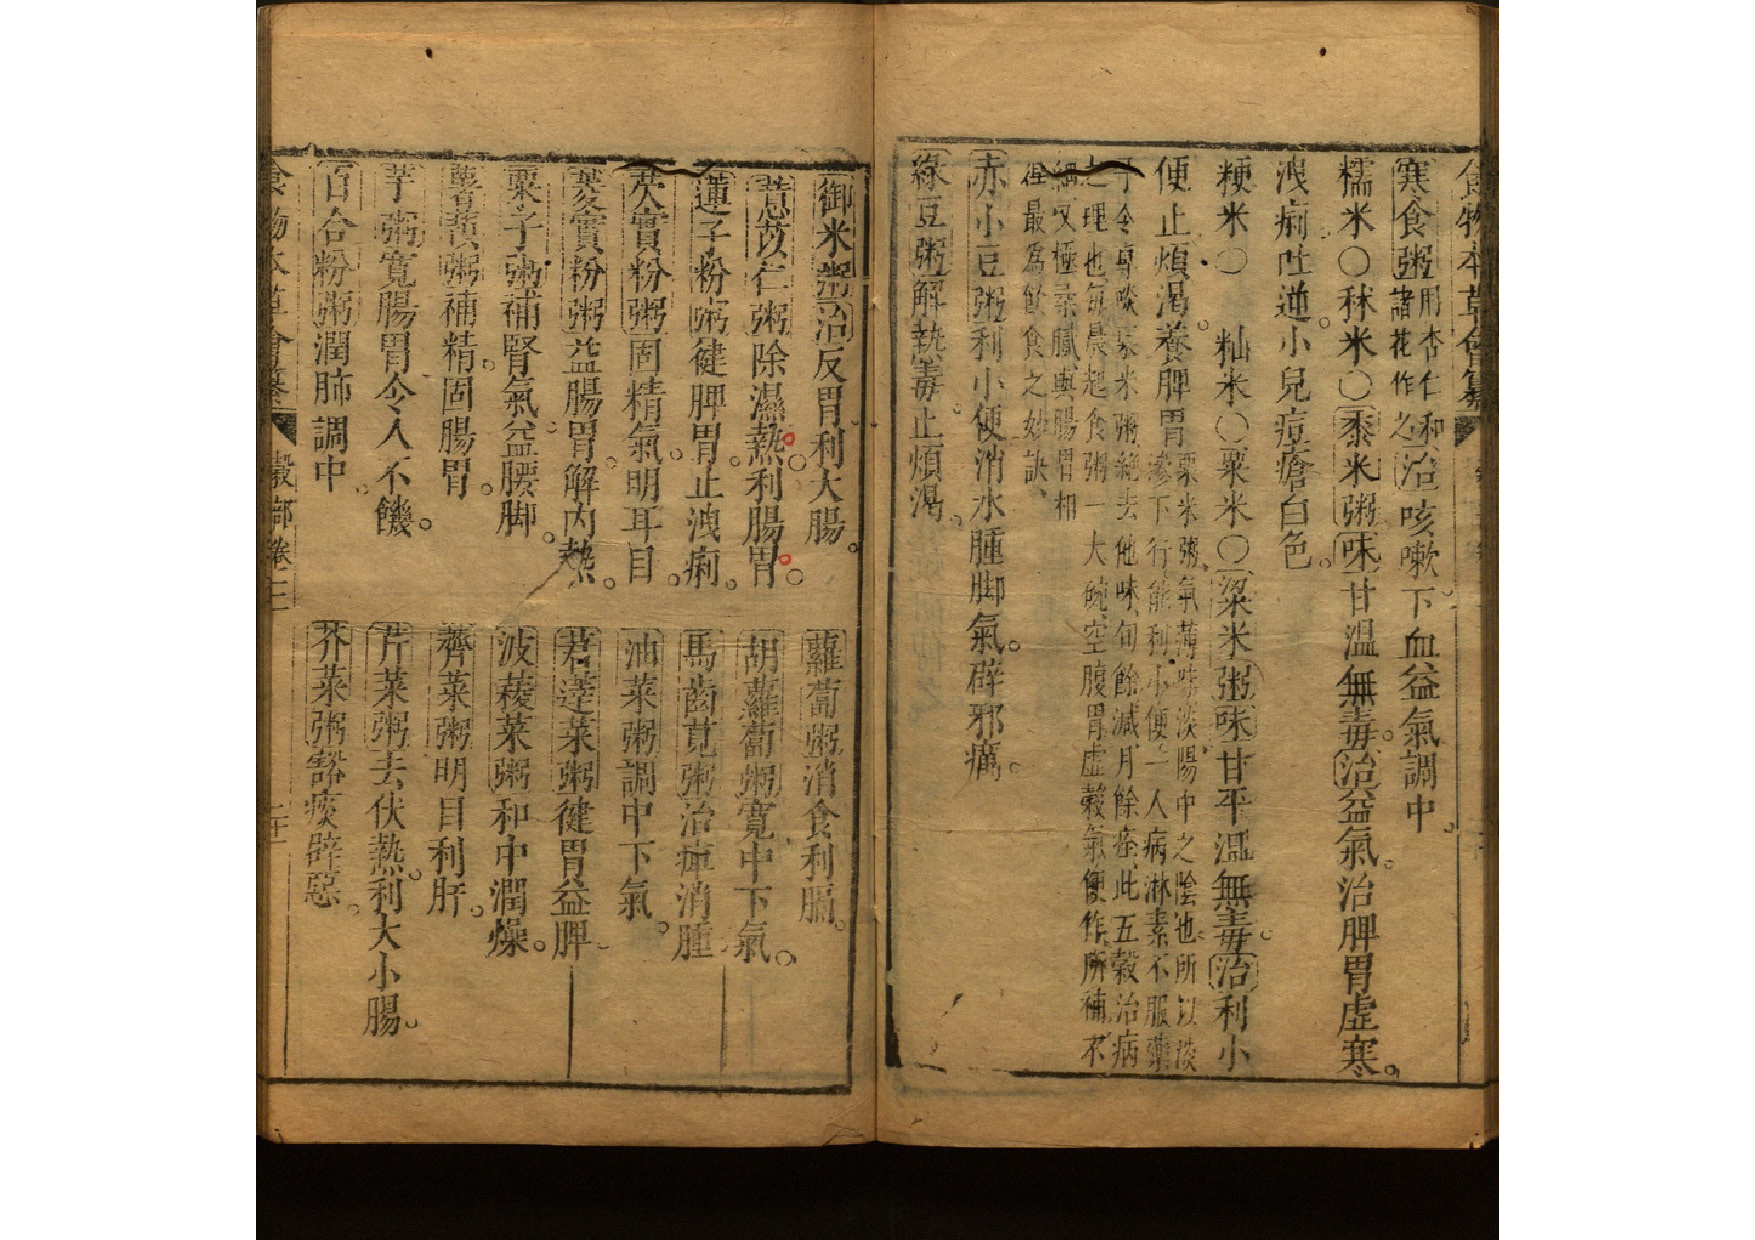 食物本草會纂
寒食粥用杏仁和諸花作之治咳嗽下血益氣調中
糯米〇秫米〇黍米粥味甘温無毒治益氣治脾胃虛寒
洩痢吐逆小兒痘瘡白色
粳米〇籼米〇粟米〇粱米粥味甘平温無毒治利小
便止煩渴養脾胃粟米粥氣薄味淡陽中之陰也所以淡
滲下行能利小便一人病淋素不服藥
予令專啖粟米粥絕去他味旬餘減月餘痊此五穀治病
之理也每晨起食粥一大碗空腹胃虛穀氣便作所補不
細又極柔膩與腸胃相
得最為飲食之妙訣
赤小豆粥利小便消水腫脚氣辟邪癘
綠豆粥解熱毒止煩渴
御米粥治反胃利大腸
蘿蔔粥消食利膈
薏苡仁粥除濕熱利腸胃
胡蘿蔔粥寬中下氣
蓮子粉粥健脾胃止洩痢
馬齒莧粥治痺消腫
芡實粉粥固精氣明耳目
油菜粥調中下氣
菱實粉粥益腸胃解內熱
莙薘菜粥健胃益脾
栗子粥補腎氣益腰脚
波薐菜粥和中潤燥
薯蕷粥補精固腸胃
薺菜粥明目利肝
芋粥寬腸胃令人不饑
芹菜粥去伏熱利大小腸
百合粉粥潤肺調中
芥菜粥豁痰辟惡
食物本草會纂 穀部卷三 二十